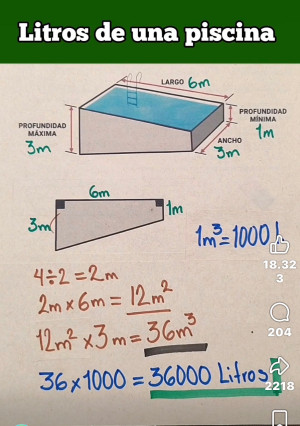 Litros de una piscina
LARGO 6m
PROFUNDIDAD
MÍNIMA
1m
PROFUNDIDAD
MÁXIMA
3m
ANCHO
3m
6m
1m
3m
1m³=1000 L
4÷2=2m
2m×6m=12m²
12m²×3m=36m³
36×1000=36000 Litros
18.32
3
204
2218